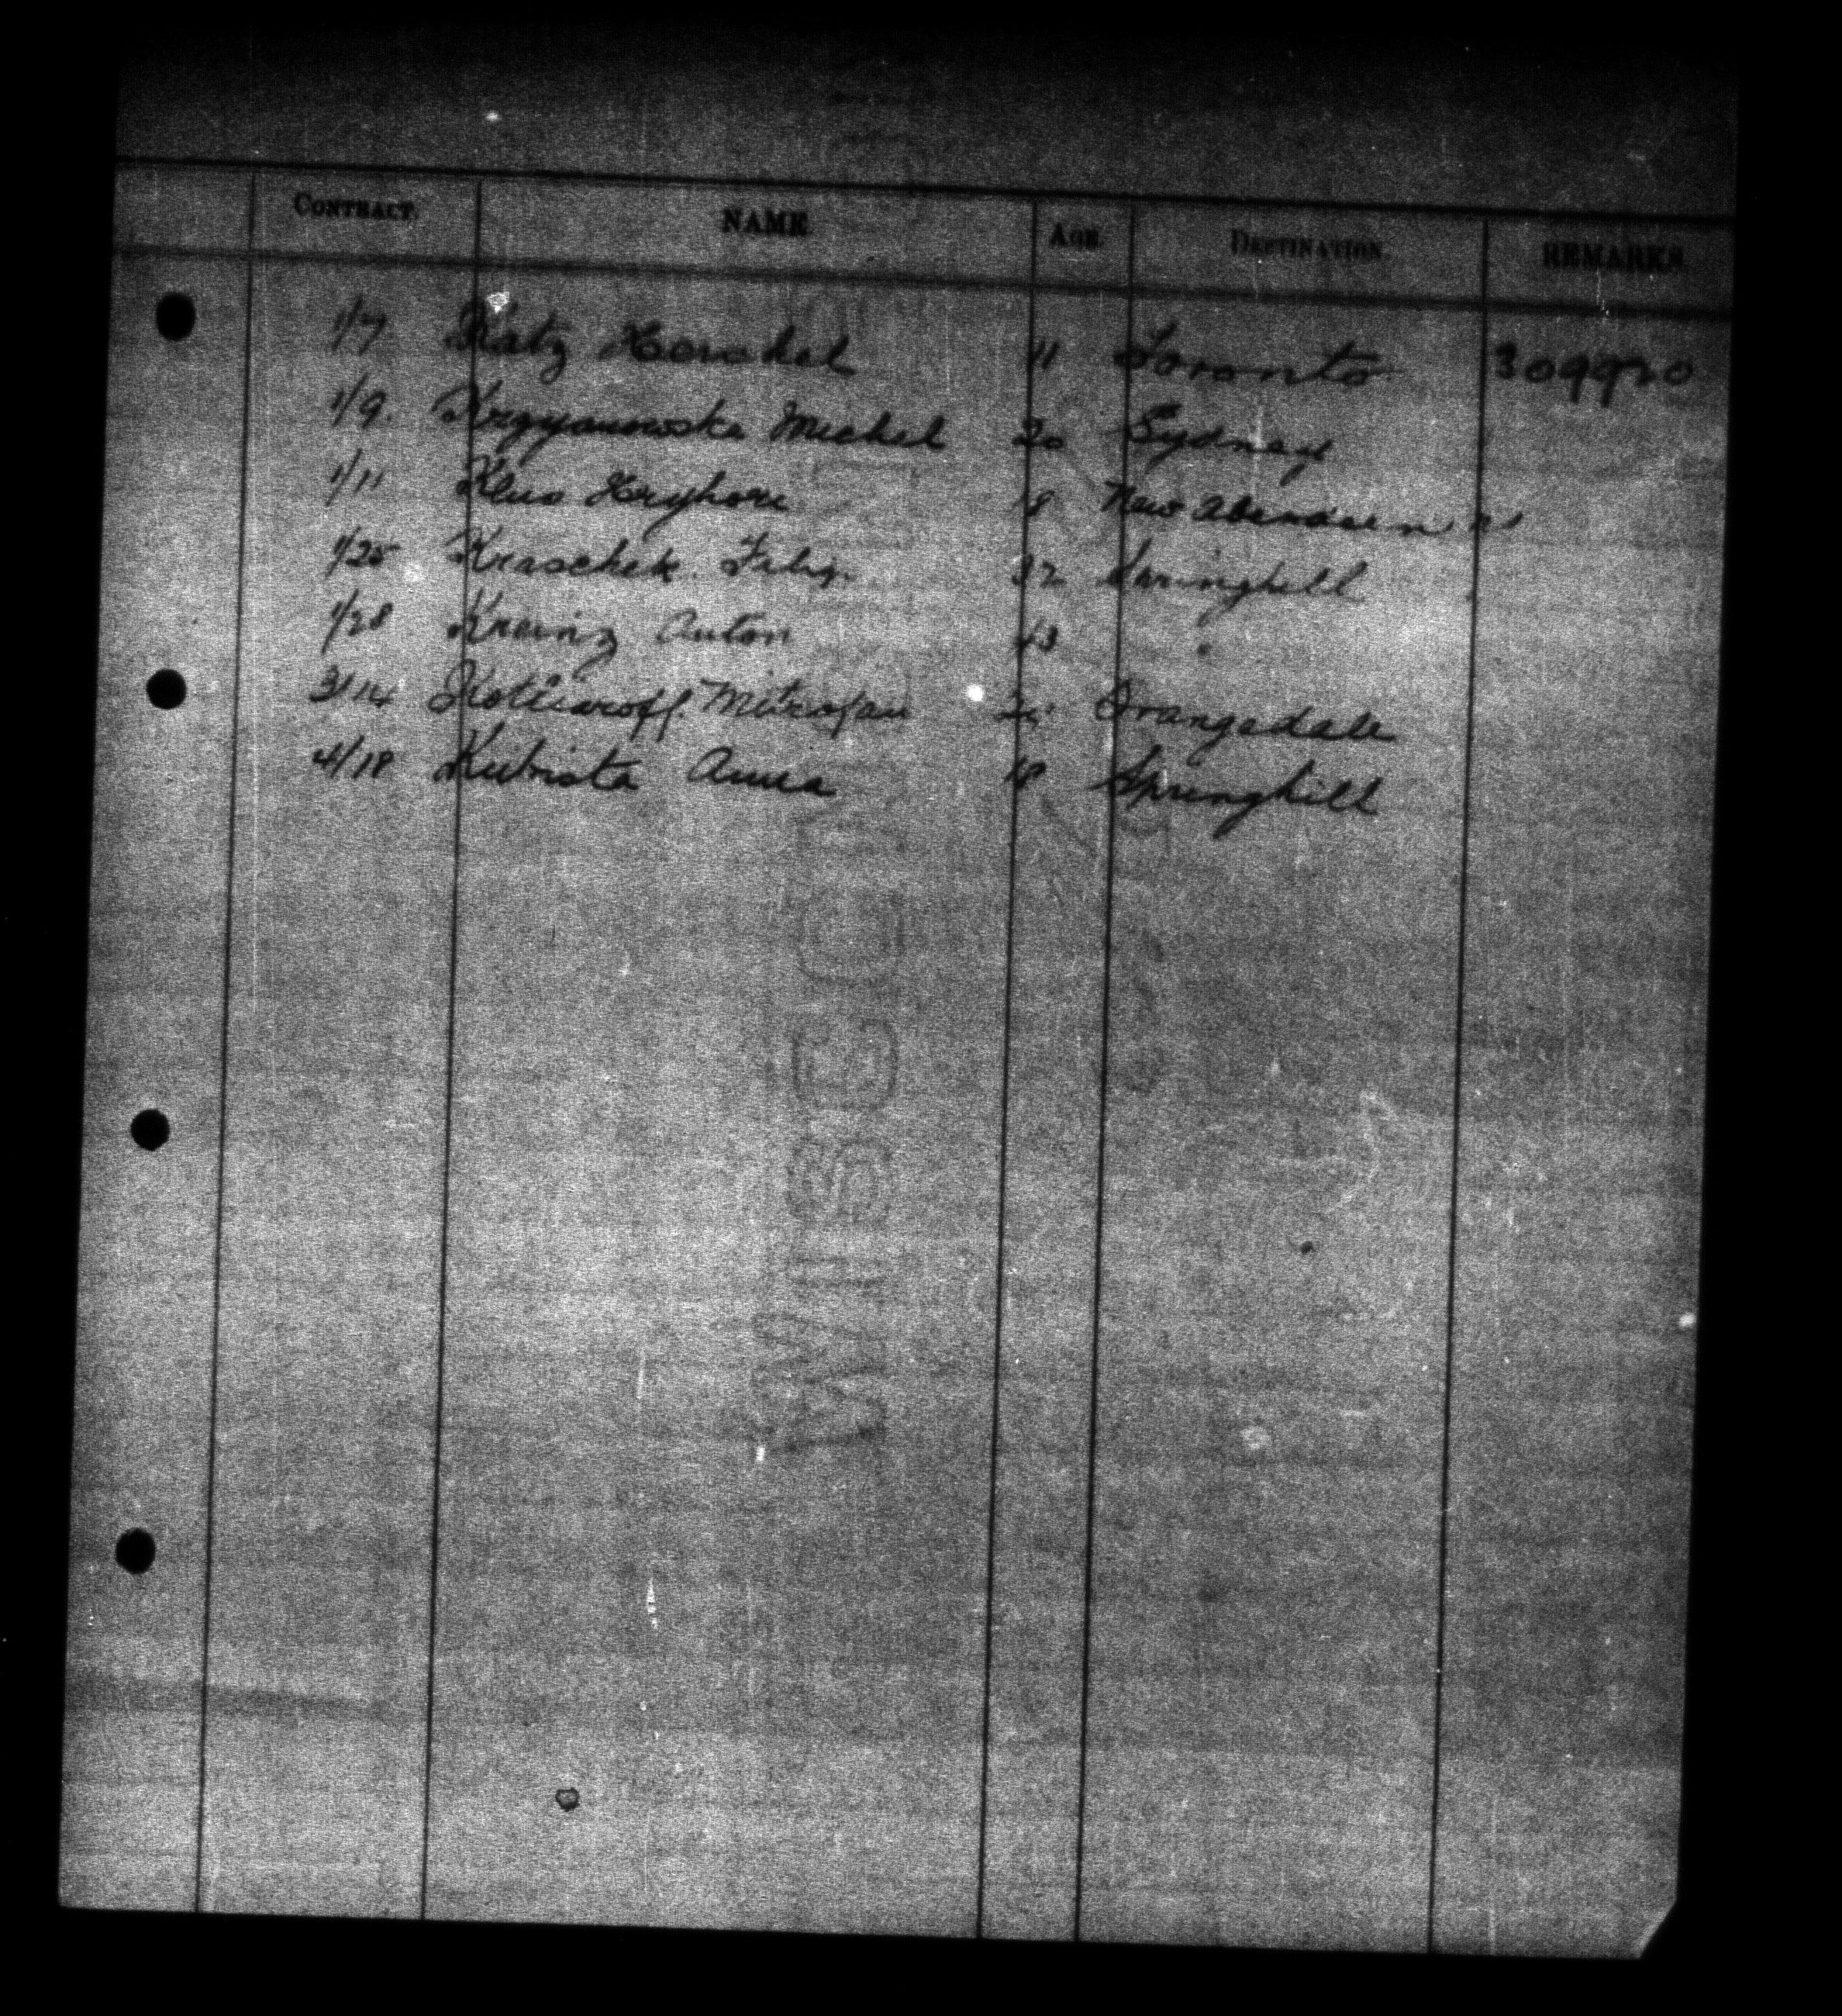 CONTRACT. NAME AGE. DESTINATION. REMARKS
1/7 Katz Herschel 11 Toronto 309920
1/9. Krzyanowska Michel 20 Sydney
1/11 Klus Hryhori 18 New Aberdeen
1/25 Kraschek Filip 32 Springhill
1/28 Kreinz Anton 43 "
3/14 Kotliaroff Mitrofan Orangedale
4/18 Kubista Anna 18 Springhill